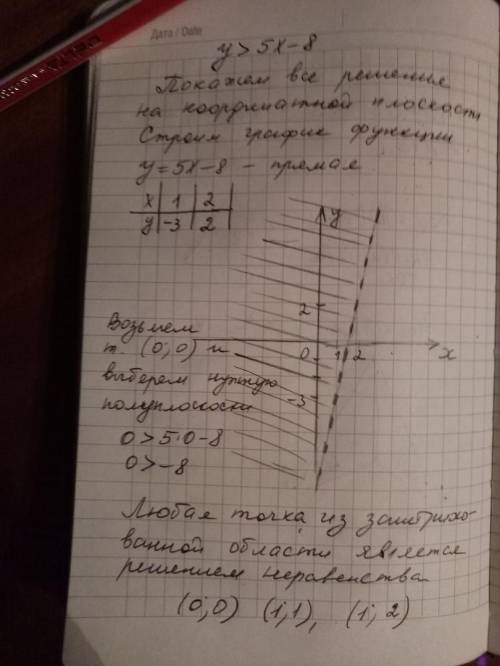 Дата / Date
y > 5x - 8
Покажем все решения
на координатной плоскости
Строим график функции
y = 5x - 8 - прямая
x | 1 | 2
y | -3 | 2
y
2
0 1 2 x
-3
Возьмем
т. (0; 0) и
выберем нужную
полуплоскость
0 > 5·0 - 8
0 > -8
Любая точка из заштрихо-
ванной области является
решением неравенства
(0; 0) (1; 1), (1; 2)